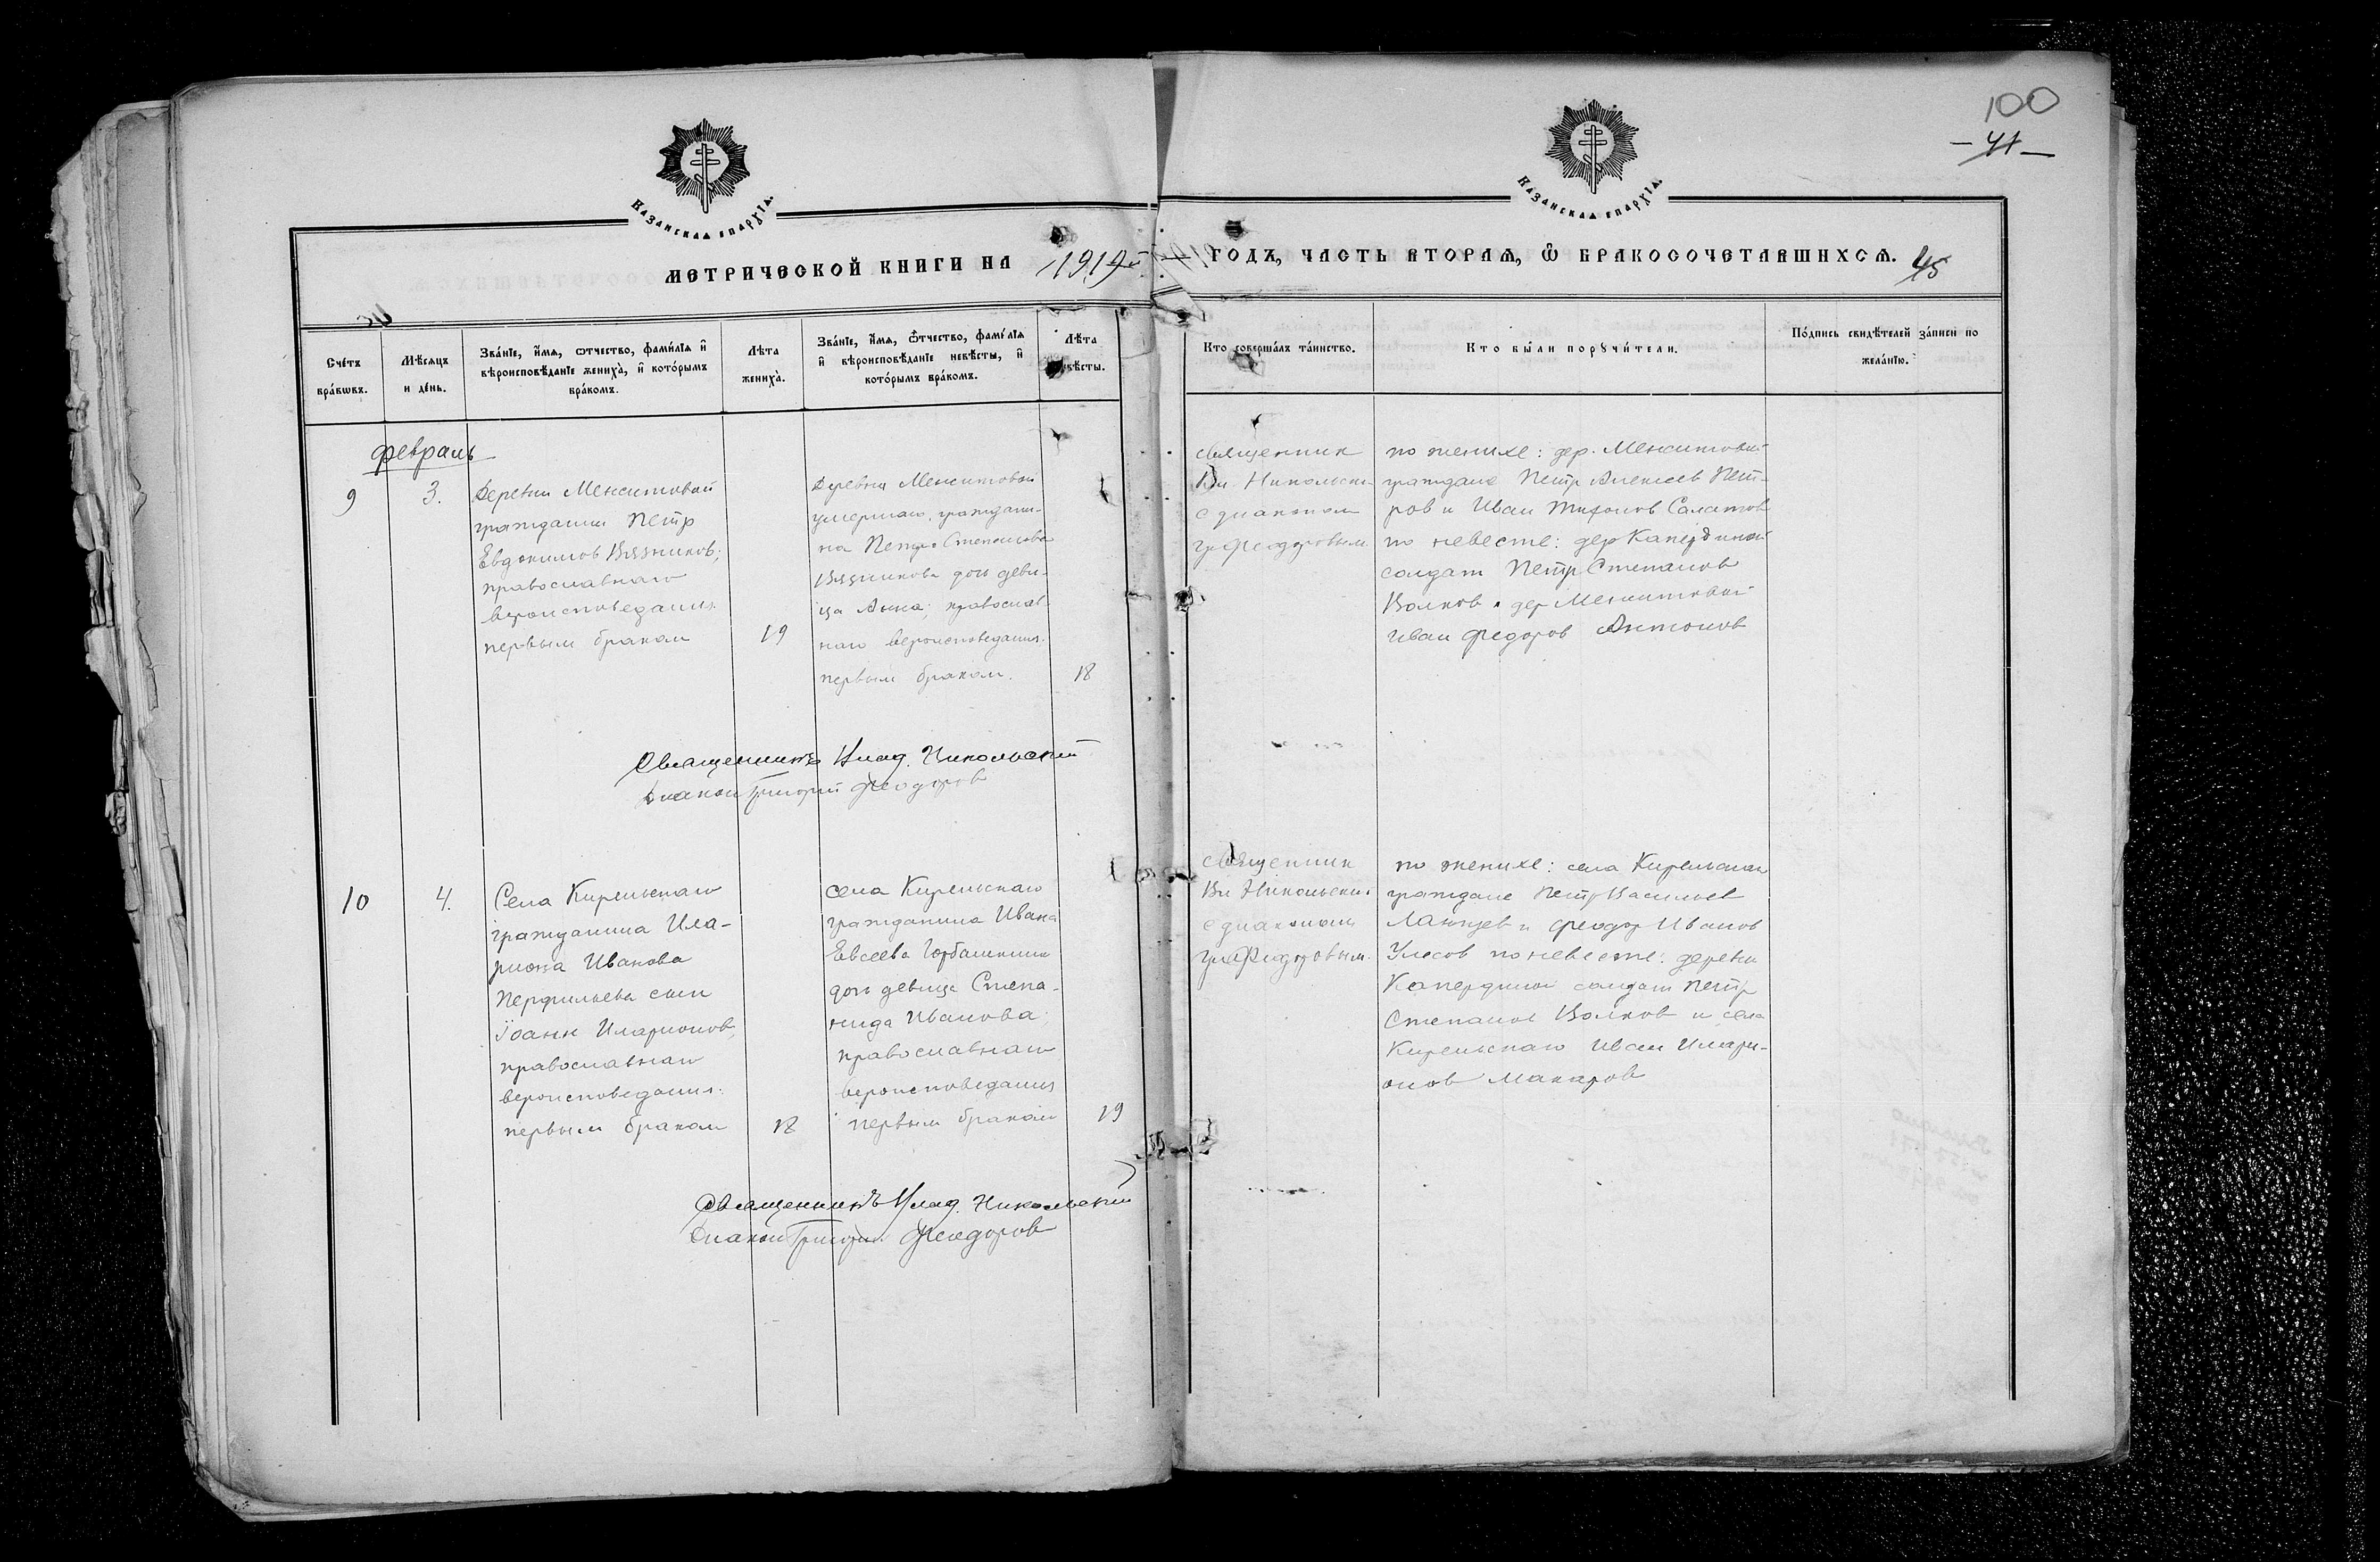 100
41
Казанская епархїа.
Казанская епархїа.
МЕТРИЧЕСКОЙ КНИГИ НА 1919 ГОДЪ, ЧАСТЬ ВТОРАЯ, Ѿ БРАКОСОЧЕТАВШИХСЯ. 45
Счетъ бракѡвъ.
Мѣсяцъ и день.
Званїе, имя, ѿтчество, фамилїя и
вѣроисповѣданїе жениха, и которымъ
бракомъ.
Лѣта
жениха.
Званїе, имя, ѿтчество, фамилїя
и вѣроисповѣданїе невѣсты, и
которымъ бракомъ.
Лѣта
невѣсты.
Кто совершалъ таинство.
Кто были порꙋчители.
Подпись свидѣтелей записи по
желанїю.
февраль
9
3.
Деревни Менситовой
гражданин Петр
Евдокимов Вязников;
православнаго
вероисповедания.
первым браком
19
Деревни Менситовой
умершаго граждани-
на Петра Степанова
Вязникова дочь деви-
ца Анна; православ-
наго вероисповедания.
первым браком.
18
священник
Вл. Никольски
с диаконом
Гр. Феодоровым
по женихе: дер. Менситовой
граждане Петр Алексеев Пет-
ров и Иван Тифонов Салатов
по невесте: дер Капердиной
солдат Петр Степанов
Волков и дер Менситовой
Иван Федоров Антонов
Священникъ Влад. Никольский
Диакон Григорий Феодоров
10
4.
Села Кирельскаго
гражданина Ила-
риона Иванова
Перфильева сын
Іоанн Иларионов,
православнаго
вероисповедания.
первым браком
18
села Кирельскаго
гражданина Ивана
Евсеева Горбашкина
дочь девица Степа-
нида Иванова;
православнаго
вероисповедания
первым браком
19
священник
Вл Никольский
с диаконом
Гр. Феодоровым
по женихе: села Кирельскаго
граждане Петр Васильев
и Феодор Иванов
по невесте: деревни
Капердиной солдат Петр
Степанов Волков и села
Кирельскаго Иван Илари-
онов Макаров
Священникъ Влад. Никольский
Диакон Григорий Феодоров